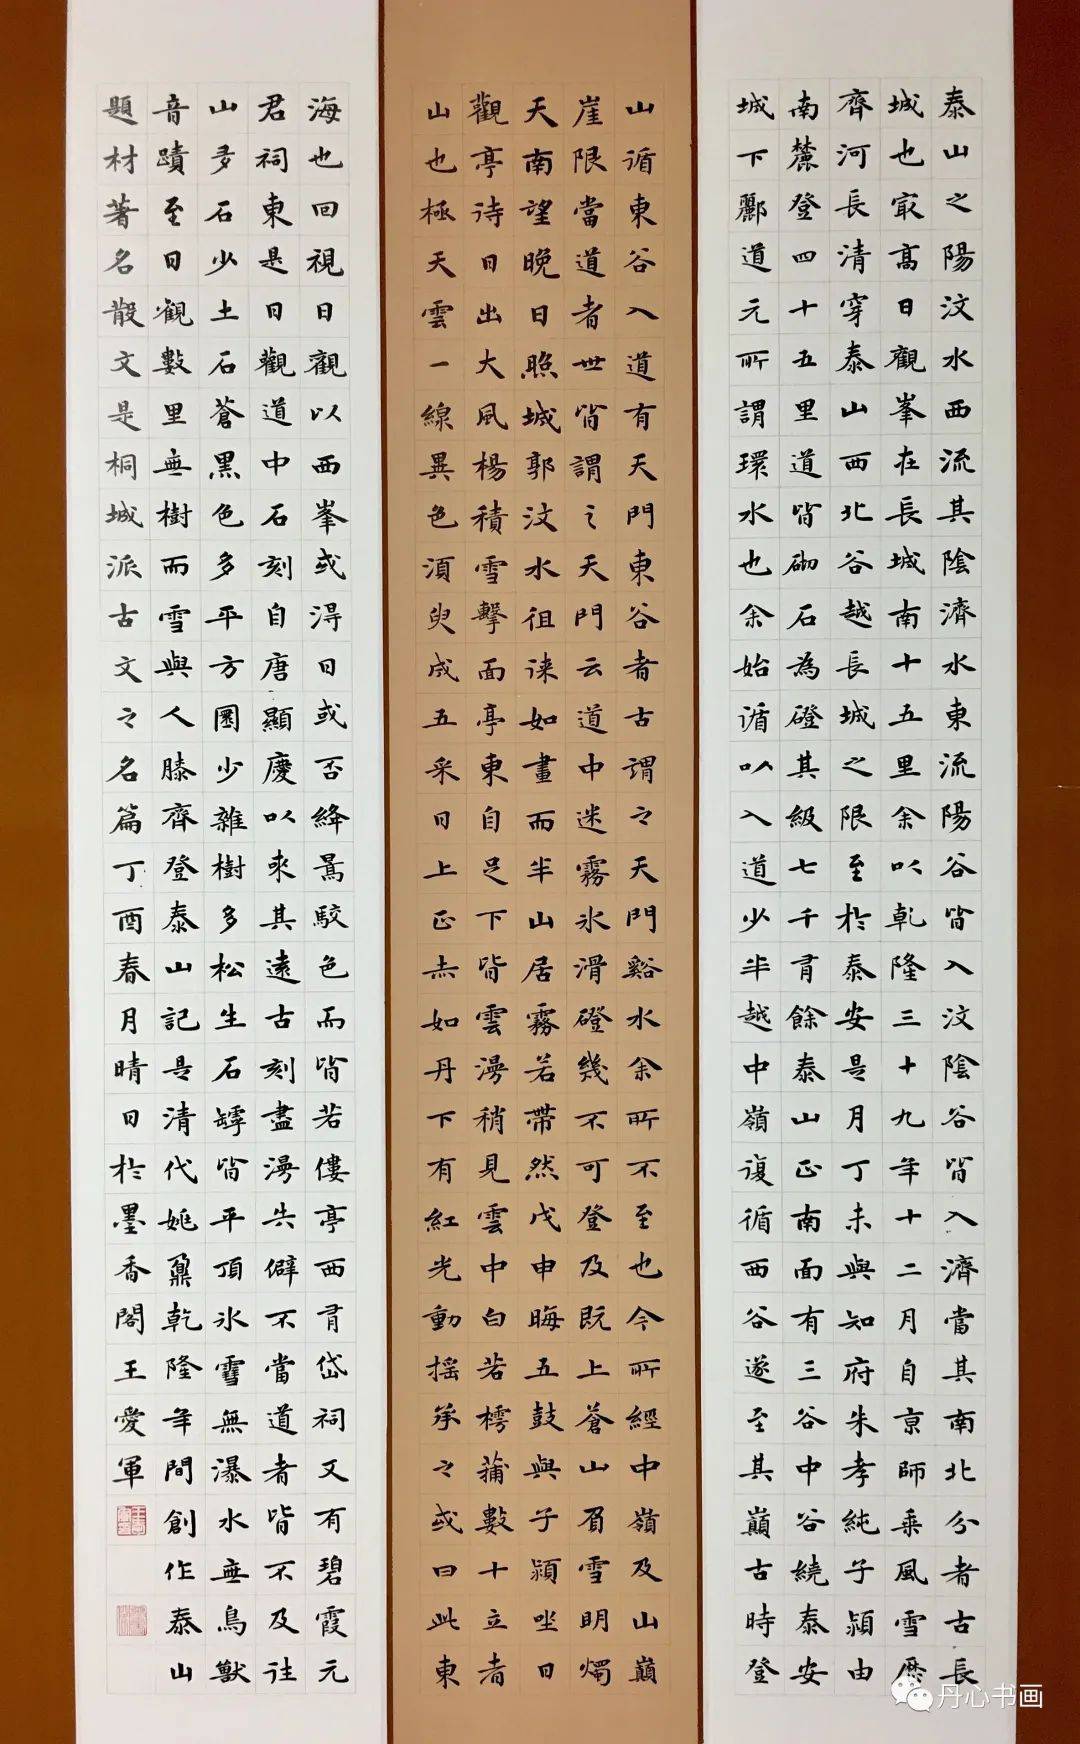 泰山之陽汶水西流其陰濟水東流陽谷皆入汶陰谷皆入濟當其南北分者古長
城也冣高日觀峯在長城南十五里余以乾隆三十九年十二月自京師乘風雪歷
齊河長清穿泰山西北谷越長城之限至於泰安是月丁未與知府朱孝純子潁由
南麓登四十五里道皆砌石為磴其級七千有餘泰山正南面有三谷中谷繞泰安
城下酈道元所謂環水也余始循以入道少半越中嶺復循西谷遂至其巔古時登
山循東谷入道有天門東谷者古謂之天門谿水余所不至也今所經中嶺及山巔
崖限當道者世皆謂之天門云道中迷霧冰滑磴幾不可登及既上蒼山負雪明燭
天南望晚日照城郭汶水徂徠如畫而半山居霧若帶然戊申晦五鼓與子潁坐日
觀亭待日出大風楊積雪擊面亭東自足下皆雲漫稍見雲中白若樗蒲數十立者
山也極天雲一線異色須臾成五采日上正赤如丹下有紅光動搖承之或曰此東
海也回視日觀以西峯或得日或否絳暠駮色而皆若僂亭西有岱祠又有碧霞元
君祠東是日觀道中石刻自唐顯慶以來其遠古刻盡漫失僻不當道者皆不及往
山多石少土石蒼黑色多平方圜少雜樹多松生石罅皆平頂冰雪無瀑水無鳥獸
音蹟至日觀數里無樹而雪與人膝齊登泰山記是清代姚鼐乾隆年間創作泰山
題材著名散文是桐城派古文之名篇丁酉春月晴日於墨香閣王愛軍
丹心书画